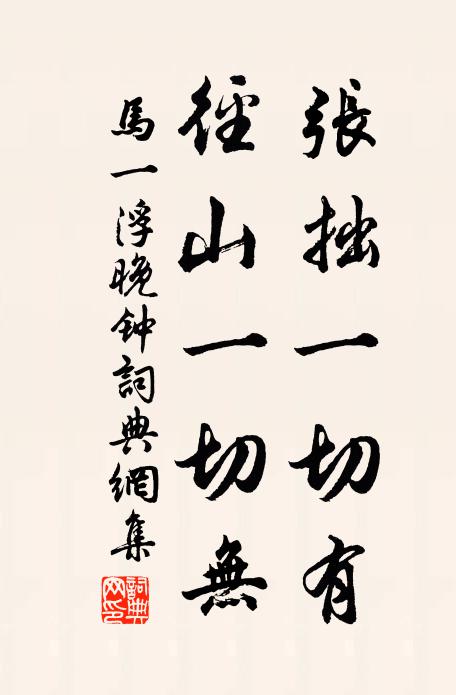 張拙一切有
徑山一切無
馬一浮晚钟詞典網集
詞典网印